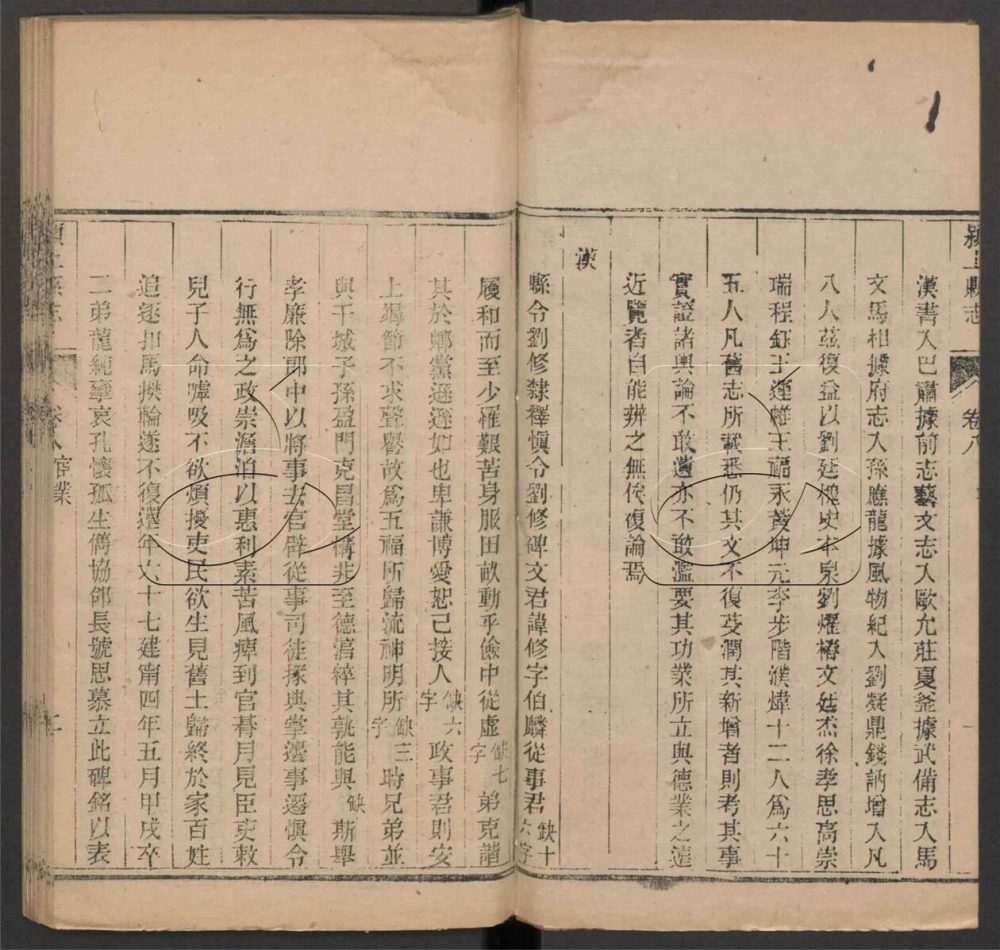 潁上縣志
卷八
漢書入巴肅據前志藝文志入歐允莊夏釜據武備志入馬
文馬相據府志入孫應龍據風物紀入劉凝鼎錢訥增入凡
八人茲復益以劉廷槐史本泉劉燿椿文廷杰徐孝思高崇
瑞程鈺王運雖王福永黃坤元李步階濮煒十二人為六十
五人凡舊志所載悉仍其文不復芟潤其新增者則考其事
實證諸輿論不敢遺亦不敢濫要其功業所立與德業之遠
近覽者自能辨之無俟復論焉
漢
縣令劉修隸釋慎令劉修碑文君諱修字伯麟從事君缺十六字
履和而至少罹艱苦身服田畝動乎儉中從虛缺七字弟克諧
其於鄉黨遜遜如也卑謙博愛恕己接人缺六字政事君則安
上竭節不求聲譽故為五福所歸流神明所缺三字時兄弟並
與干城子孫盈門克昌堂構非至德富粹其孰能與缺斯舉
孝廉除郎中以將事去官辟從事司徒掾典掌邊事遷慎令
行無為之政崇澹泊以惠利素苦風痺到官朞月見臣吏敕
兒子人命噓吸不欲煩擾吏民欲生見舊土歸終於家百姓
追逐扣馬攀輪遂不復還年六十七建甯四年五月甲戌卒
二弟龍純摯哀孔懷孤生儁協郃長號思慕立此碑銘以表
潁上縣志
卷八 宦業
二